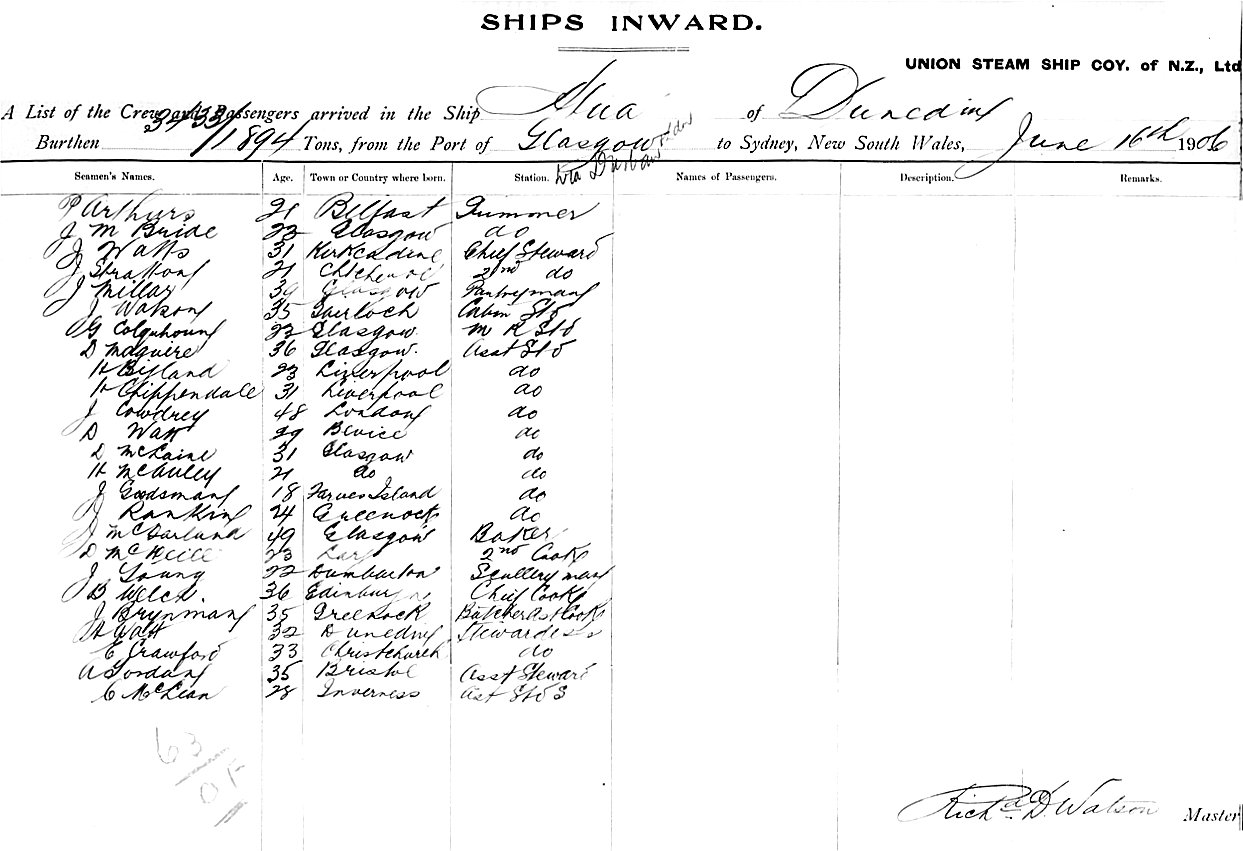 SHIPS INWARD.
UNION STEAM SHIP COY. of N.Z., Ltd
A List of the Crew and Passengers arrived in the Ship Atua of Dunedin
Burthen 3433/1894 Tons, from the Port of Glasgow via Durban to Sydney, New South Wales, June 16th 1906
Seamen's Names. Age. Town or Country where born. Station. Names of Passengers. Description. Remarks.
P Arthurs 21 Belfast Trimmer
J McBride 23 Glasgow do
J Watts 31 Chief Steward
J Stratton 21 2nd do
J Millar 39 Glasgow Pantryman
J Watson 35 Gairloch Cabin Std
G Colquhoun 23 Glasgow. M R Std
D Maguire 36 Glasgow. Asst Std
H 23 Liverpool do
H Chippendale 31 Liverpool do
J Cowdrey 48 London do
D Watt 29 do
D McLaine 31 Glasgow do
H McAuley 21 do do
J Goodsman 18 Island do
J Rankin 24 Greenock do
J McFarland 49 Glasgow Baker
D McNeill 23 2nd Cook
J Young 22 Dumbarton Scullery man
B Welch. 36 Edinburgh Chief Cook
J Brynman 35 Greenock Butcher Ast Cook
Watt 32 Dunedin Stewardess
E Crawford 33 Christchurch do
A Jordan 35 Bristol Asst Steward
C McLean 28 Inverness Ast Std S
63
Richd. D. Watson Master